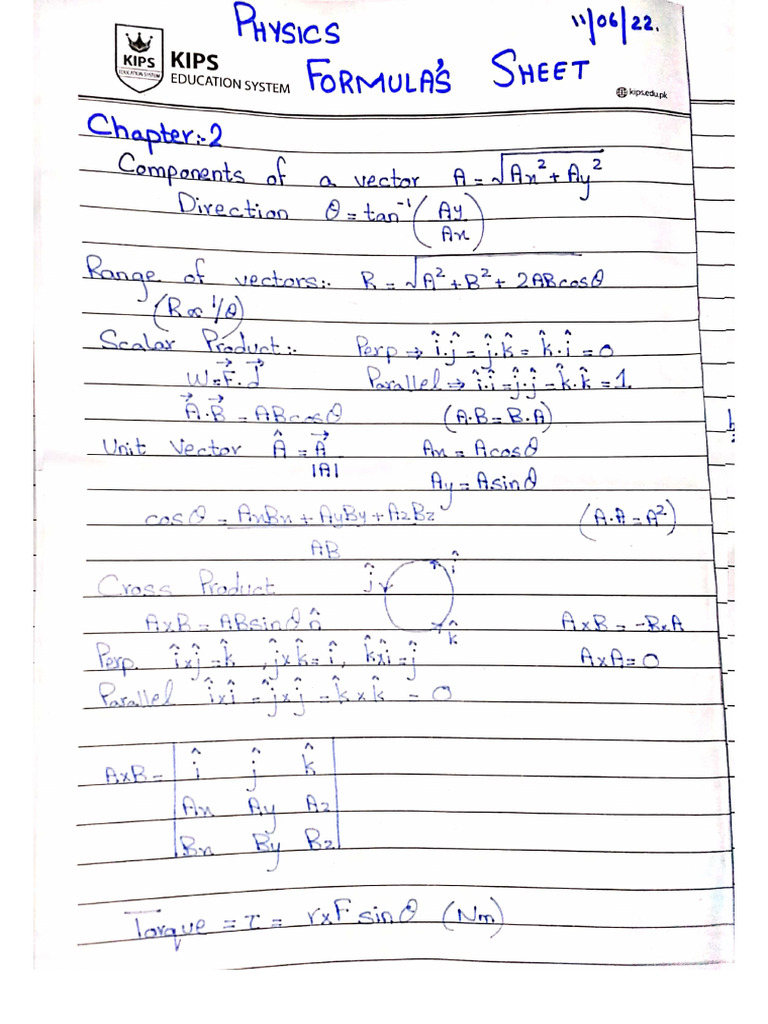 PHYSICS 11/06/22.
KIPS
EDUCATION SYSTEM
KIPS
EDUCATION SYSTEM
FORMULA'S SHEET
kips.edu.pk
Chapter:-2
Components of a vector A = √Ax² + Ay²
Direction θ = tan⁻¹ (Ay/Ax)
Range of vectors:- R = √A² + B² + 2ABcosθ
(R∝ 1/θ)
Scalar Product:- Perp → î.ĵ = ĵ.k̂ = k̂.î = 0
W = F⃗.d⃗ Parallel → î.î = ĵ.ĵ = k̂.k̂ = 1
A⃗.B⃗ = ABcosθ (A.B = B.A)
Unit Vector Â = A⃗/|A| Ax = Acosθ
Ay = Asinθ
cosθ = AxBx + AyBy + AzBz/AB (A.A = A²)
Cross Product ĵ î
k̂
AxB = ABsinθ n̂ AxB = -BxA
Perp. îxĵ = k̂, ĵxk̂ = î, k̂xî = ĵ AxA = 0
Parallel îxî = ĵxĵ = k̂xk̂ = 0
AxB = | î ĵ k̂ |
| Ax Ay Az |
| Bx By Bz |
Torque = τ = rxF sinθ (Nm)